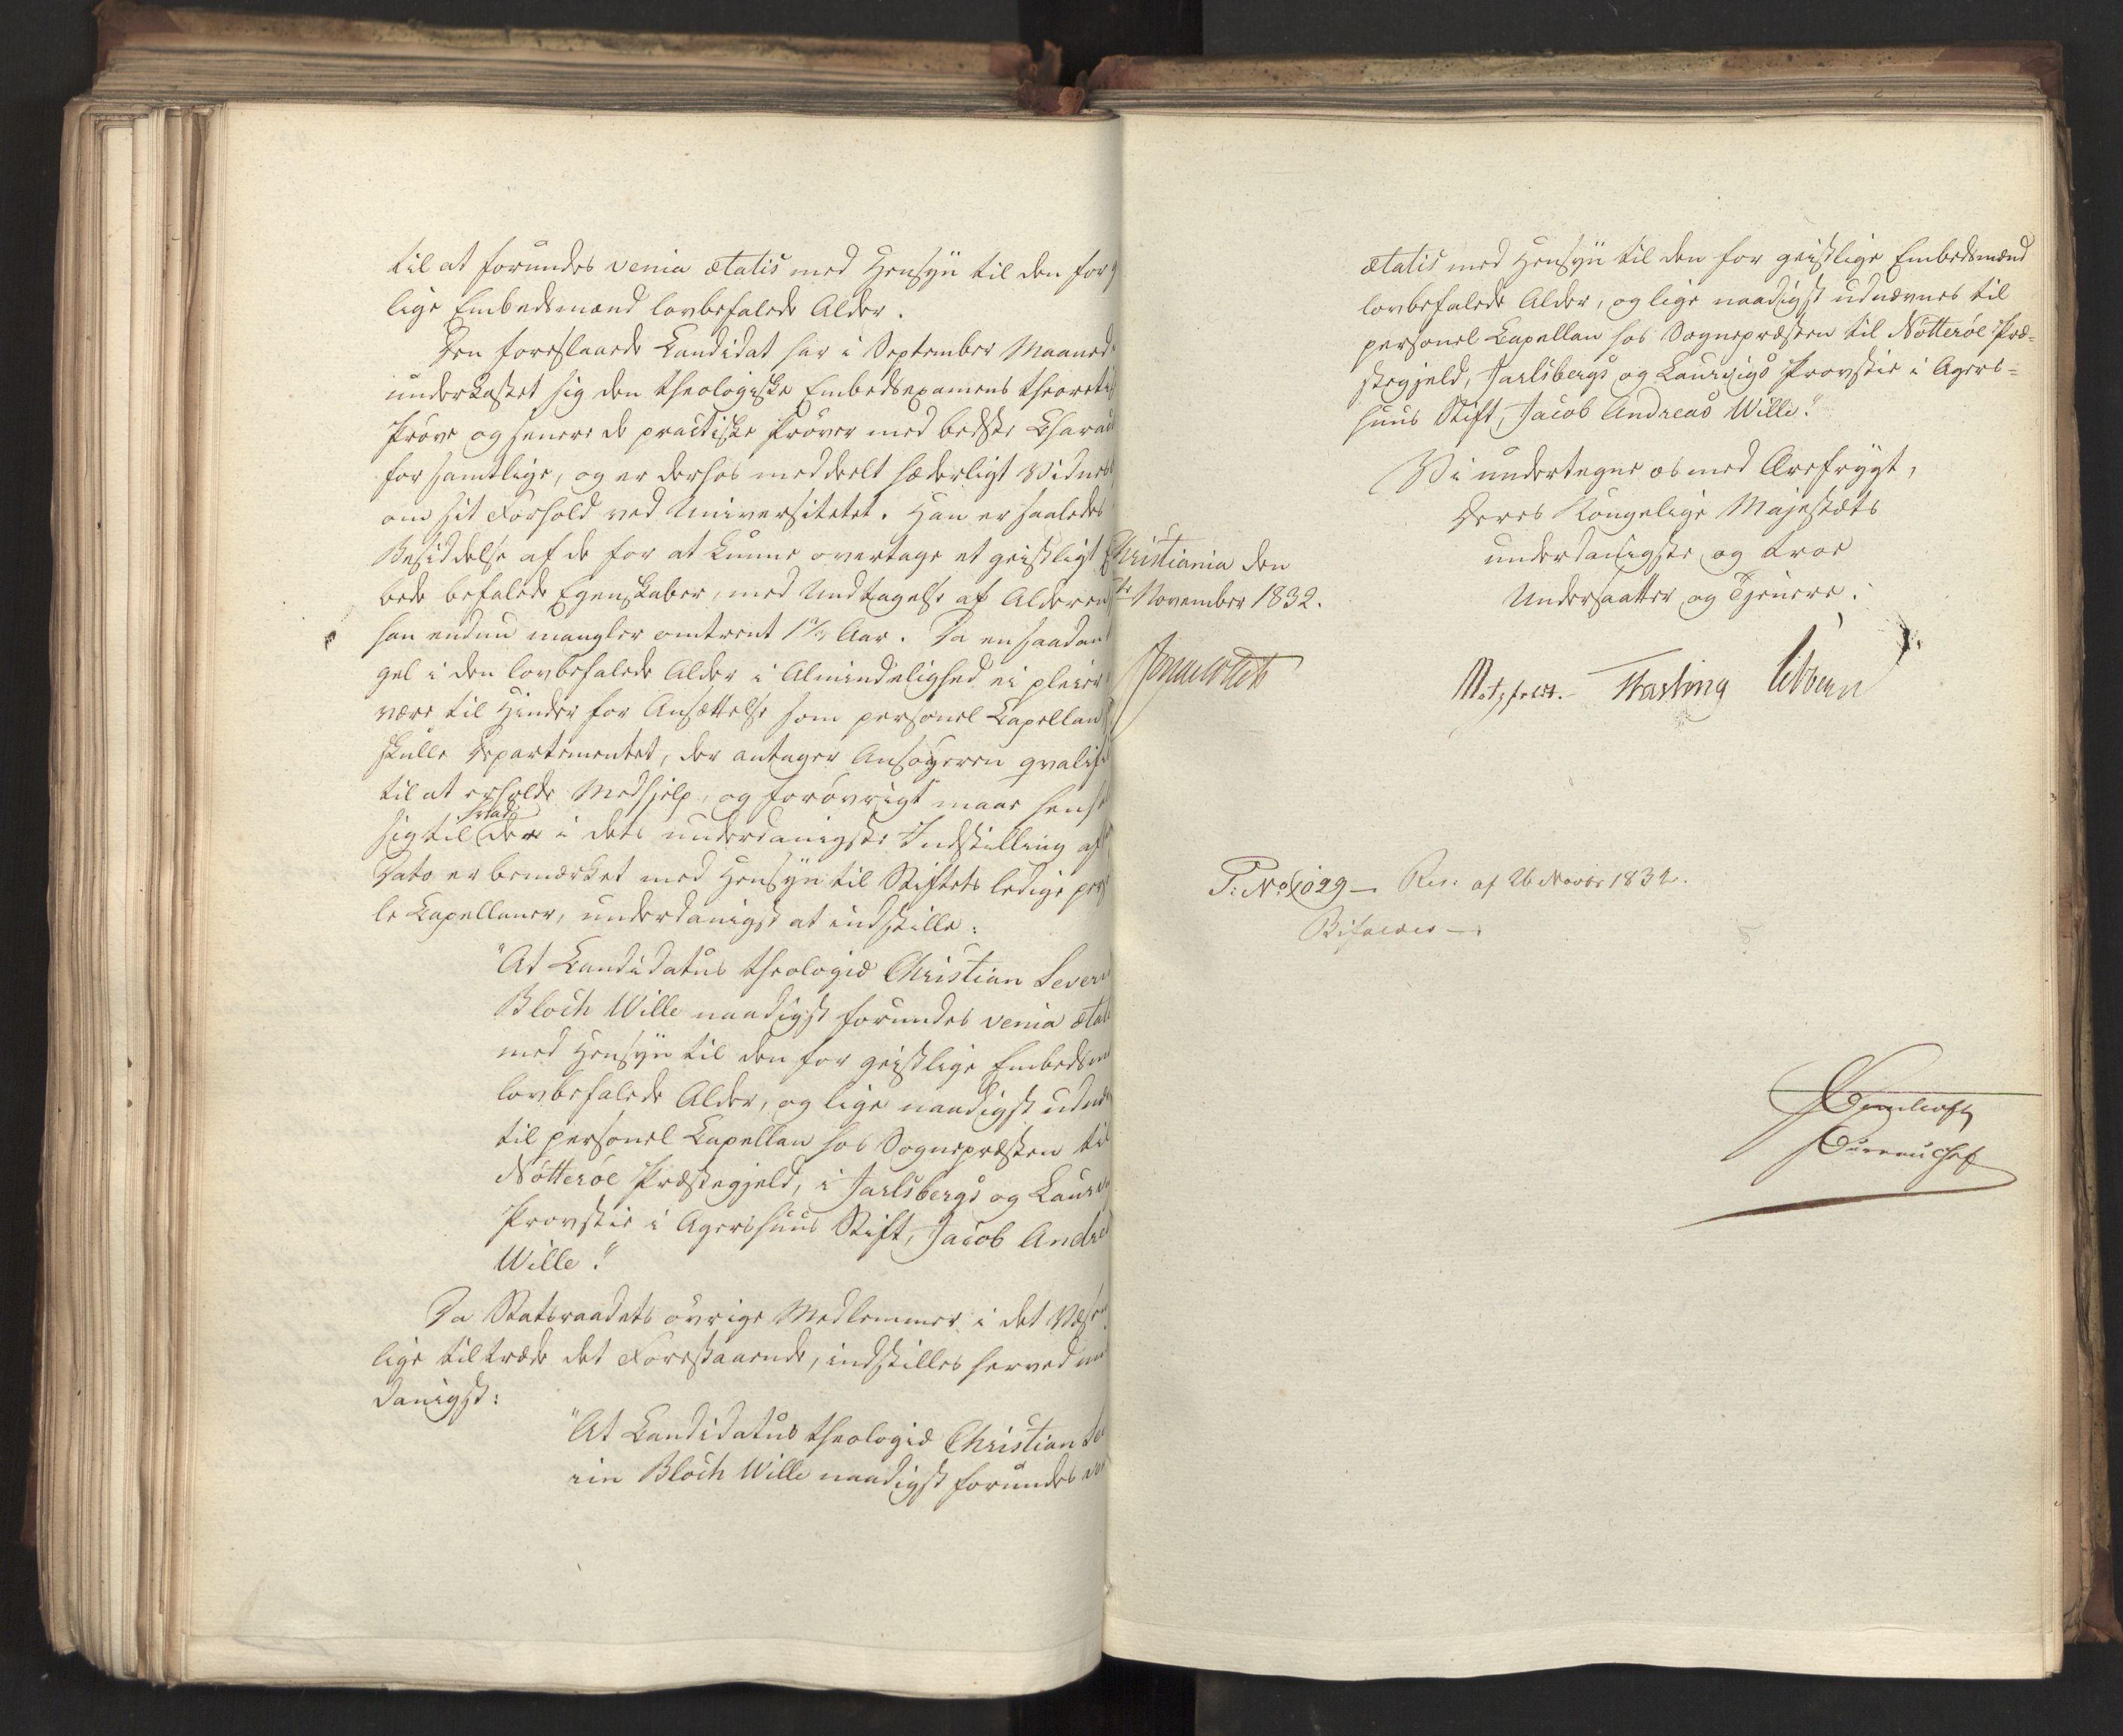 til at forundes venia ætatis med Hensyn til den for g
lige Embedsmænd lovbefalede Alder.
Den foreslaaede Candidat har i September Maaned
underkastet sig den theologiske Embedsexamens theoretis
Prøve og senere de practiske Prøver med bedste Charact
for samtlige, og er derhos meddeelt hæderligt Vidnes
om sit Forhold ved Universitetet. Han er saaledes
Besiddelse af de for at kunne overtage et geistligt E
bede befalede Egenskaber, med Undtagelse af Alderen
han endnu mangler omtrent Aar. Da en saadan
gel i den lovbefalede Alder i Almindelighed ei pleier
være til Hinder for Ansættelse som personel Capellan
skulle Departementet, der antager Ansøgeren qvalifi
til at erholde Medhjelp, og forøvrigt maae henh
hvad
sig til der i dets underdanigste Indstilling af
Dato er bemærket med Hensyn til Stiftets ledige pers
le Capellaner, underdanigst at indstille:
"At Candidatus theologiæ Christian Sever
Bloch Wille naadigst forundes venia ætati
med Hensyn til den for geistlige Embedsm
lovbefalede Alder, og lige naadigst udnæ
til personel Capellan hos Sognepræsten til
Nøtterøe Præstegjeld, i Jarlsbergs og Laurv
Provstie i Agershuus Stift, Jacob Andrea
Wille."
Da Statsraadets øvrige Medlemmer i det Væsen
lige tiltræde det Forestaaende, indstilles herved un
danigst:
"At Candidatus theologiæ Christian Se
rin Bloch Wille naadigst forundes ve
ætatis med Hensyn til den for geistlige Embedsmænd
lovbefalede Alder, og lige naadigst udnævnes til
personel Capellan hos Sognepræsten til Nøtterøe Præ-
stegjeld, Jarlsbergs og Laurvigs Provstie i Agers=
huus Stift, Jacob Andreas Wille."
Vi undertegne os med Ærefrygt,
Deres Kongelige Majestæts
underdanigste og troe
Undersaatter og Tjenere:
Christiania den
November 1832.
Motzfeldt. Fasting Vibe
P: No 1029 – Res: af 26 Novbr 1832.
Bifaldes –.
Bureauchef